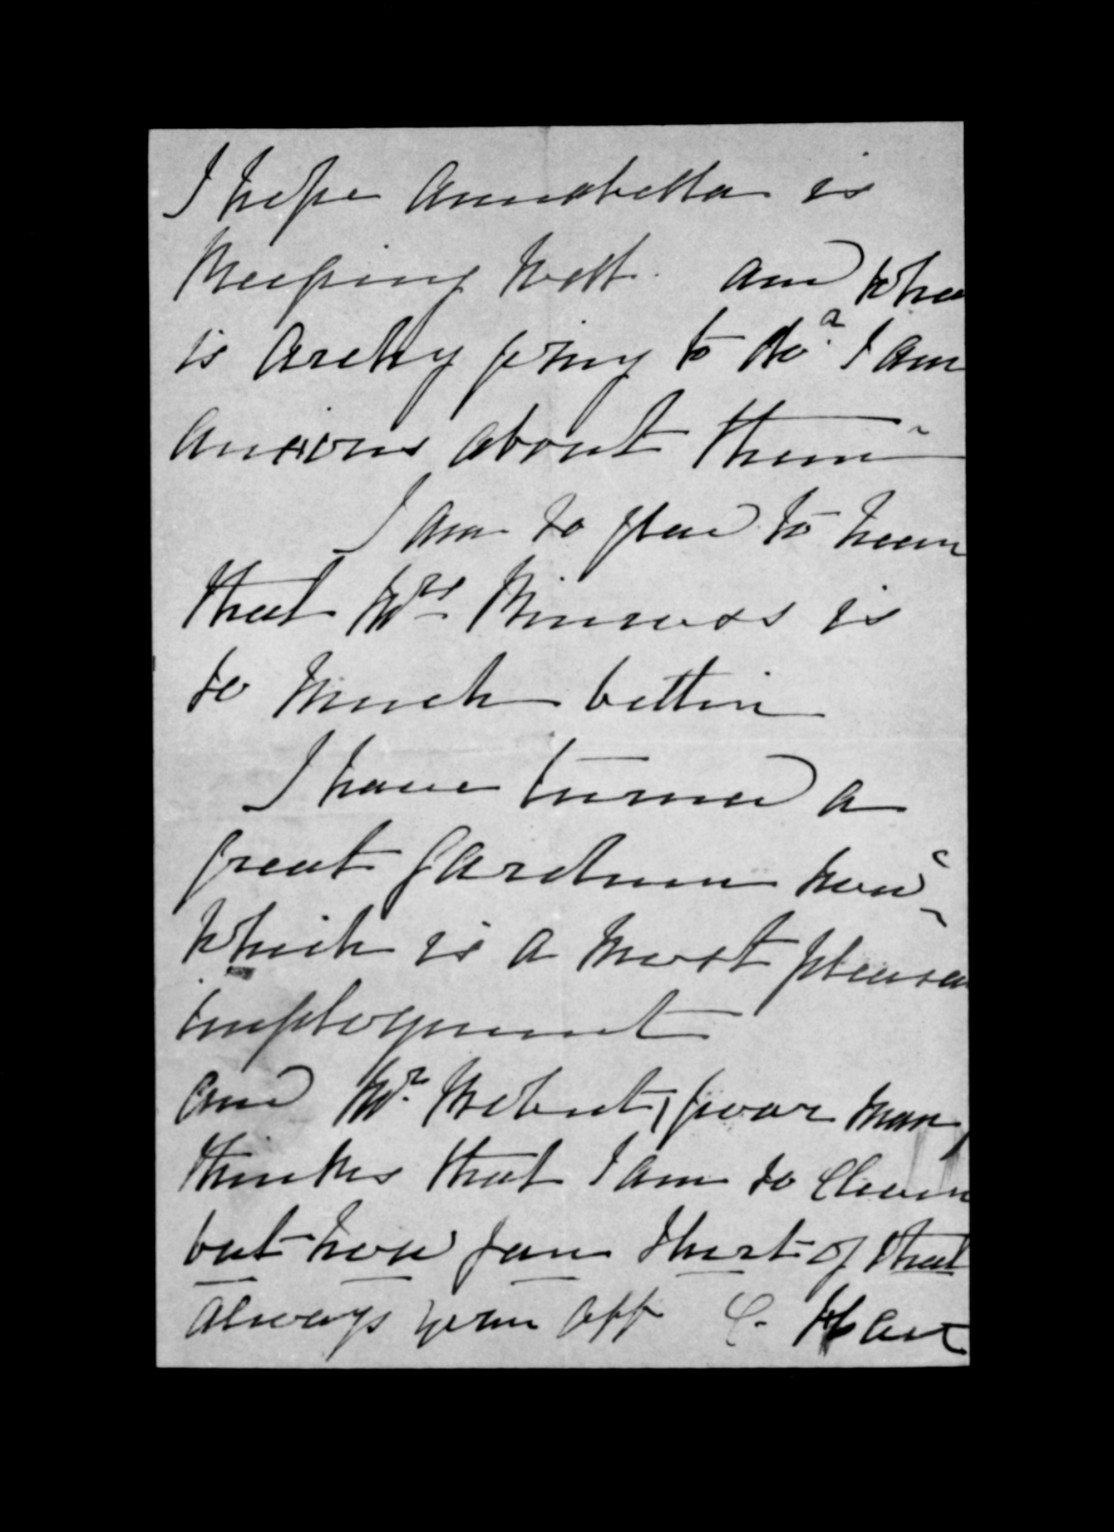 I hope Annabella is
keeping well. and wha
is Archy going to do? I am
anxious about them
I am so glad to hear
that Mrs Kinross is
so much better
I have turned a
great Gardener now
which is a most pleasa
employment
and Mr poor man,
thinks that I am so Clever
but how far short of that
always your aff C.